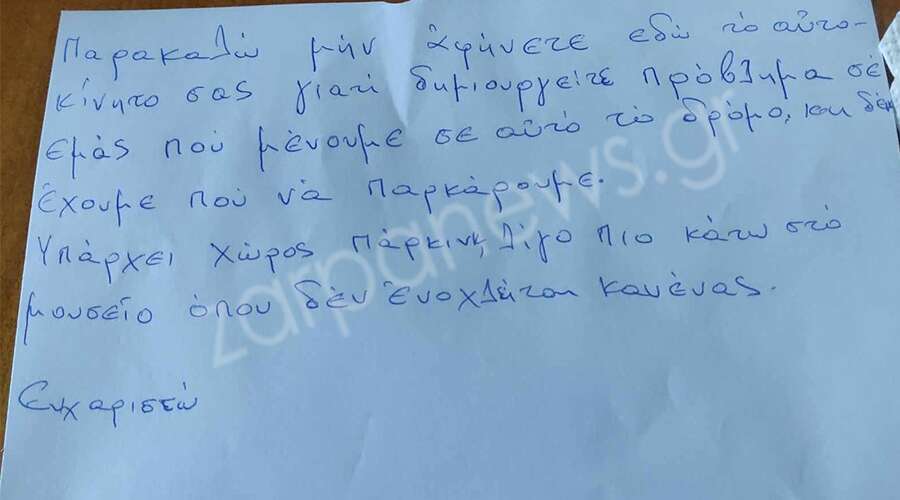 Παρακαλώ μήν ἀφήνετε εδώ τό αὐτο-
κίνητο σας γιατί δημιουργείτε πρόβλημα σέ
εμάς πού μένουμε σε αὐτό τό δρόμο, και δέν
ἔχουμε πού νά παρκάρουμε.
Υπάρχει χώρος πάρκινκ, λίγο πιο κάτω στό
μουσείο όπου δέν ἐνοχλείται κανένας.
Ευχαριστώ
zarpanews.gr